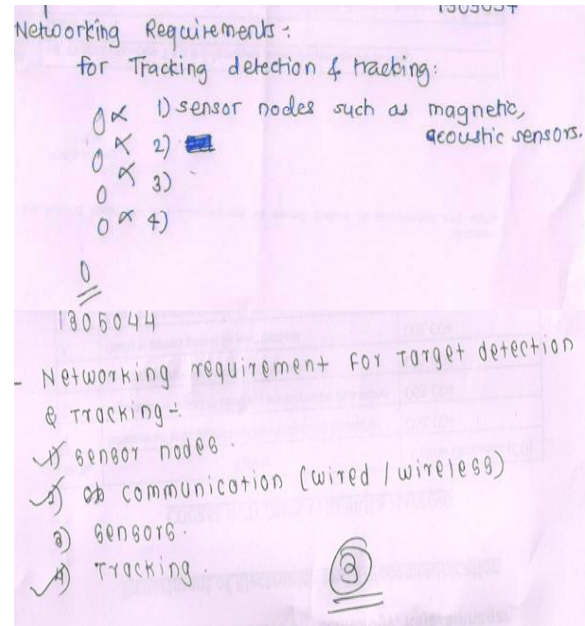 Networking Requirements :-
for Tracking detection & tracking:
0 × 1) sensor nodes such as magnetic,
acoustic sensors.
0 × 2)
0 × 3)
0 × 4)
0
1305044
- Networking requirement for Target detection
& Tracking :-
✓ 1) sensor nodes.
✓ 2) communication (wired / wireless)
3) sensors.
✓ 4) Tracking.